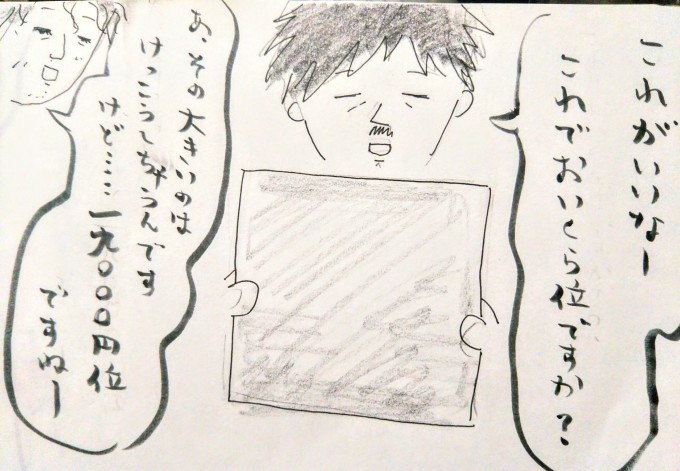 これがいいなー
これでおいくら位ですか?
あ、その大きいのは
けっこうしちゃうんです
けど……一九〇〇〇円位
ですねー